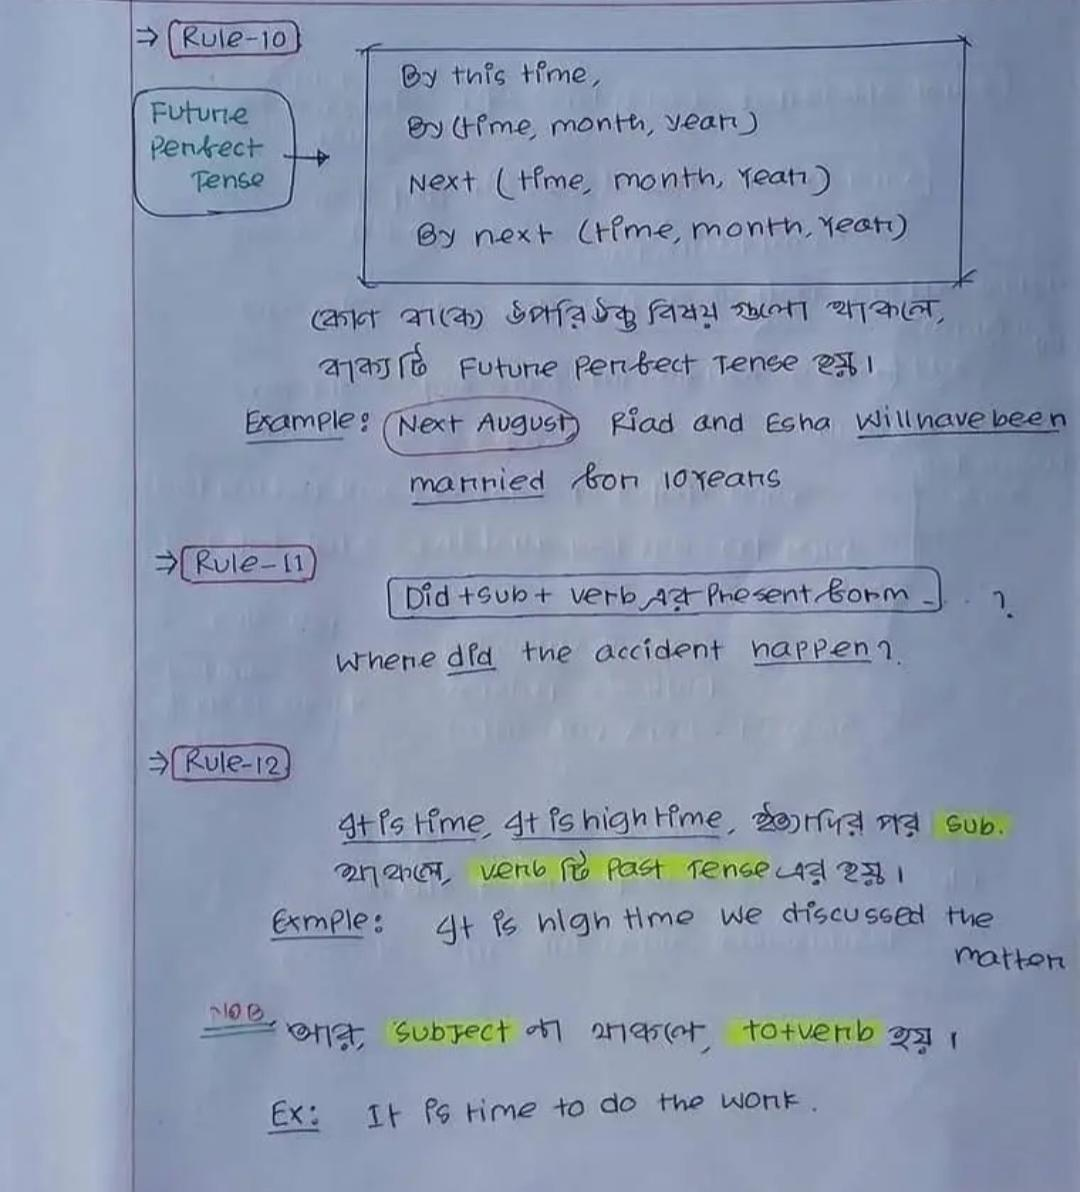 ⇒ Rule-10
Future
Perfect
Tense
By this time,
By (time, month, year)
Next (time, month, Year)
By next (time, month, Year)
কোন বাক্যে উপরিউক্ত বিষয় গুলো থাকলে,
বাক্যটি Future Perfect Tense হয়।
Example: Next August Riad and Esha will have been
married for 10 Years
⇒ Rule-11
Did + sub + verb এর Present form - . . ?
Where did the accident happen?.
⇒ Rule-12
It is time, It is high time, ইত্যাদির পর sub.
থাকলে, verb টি Past Tense এর হয়।
Exmple: It is high time we discussed the
matter
NOB, আর, Subject না থাকলে, to+verb হয়।
Ex: It is time to do the work.